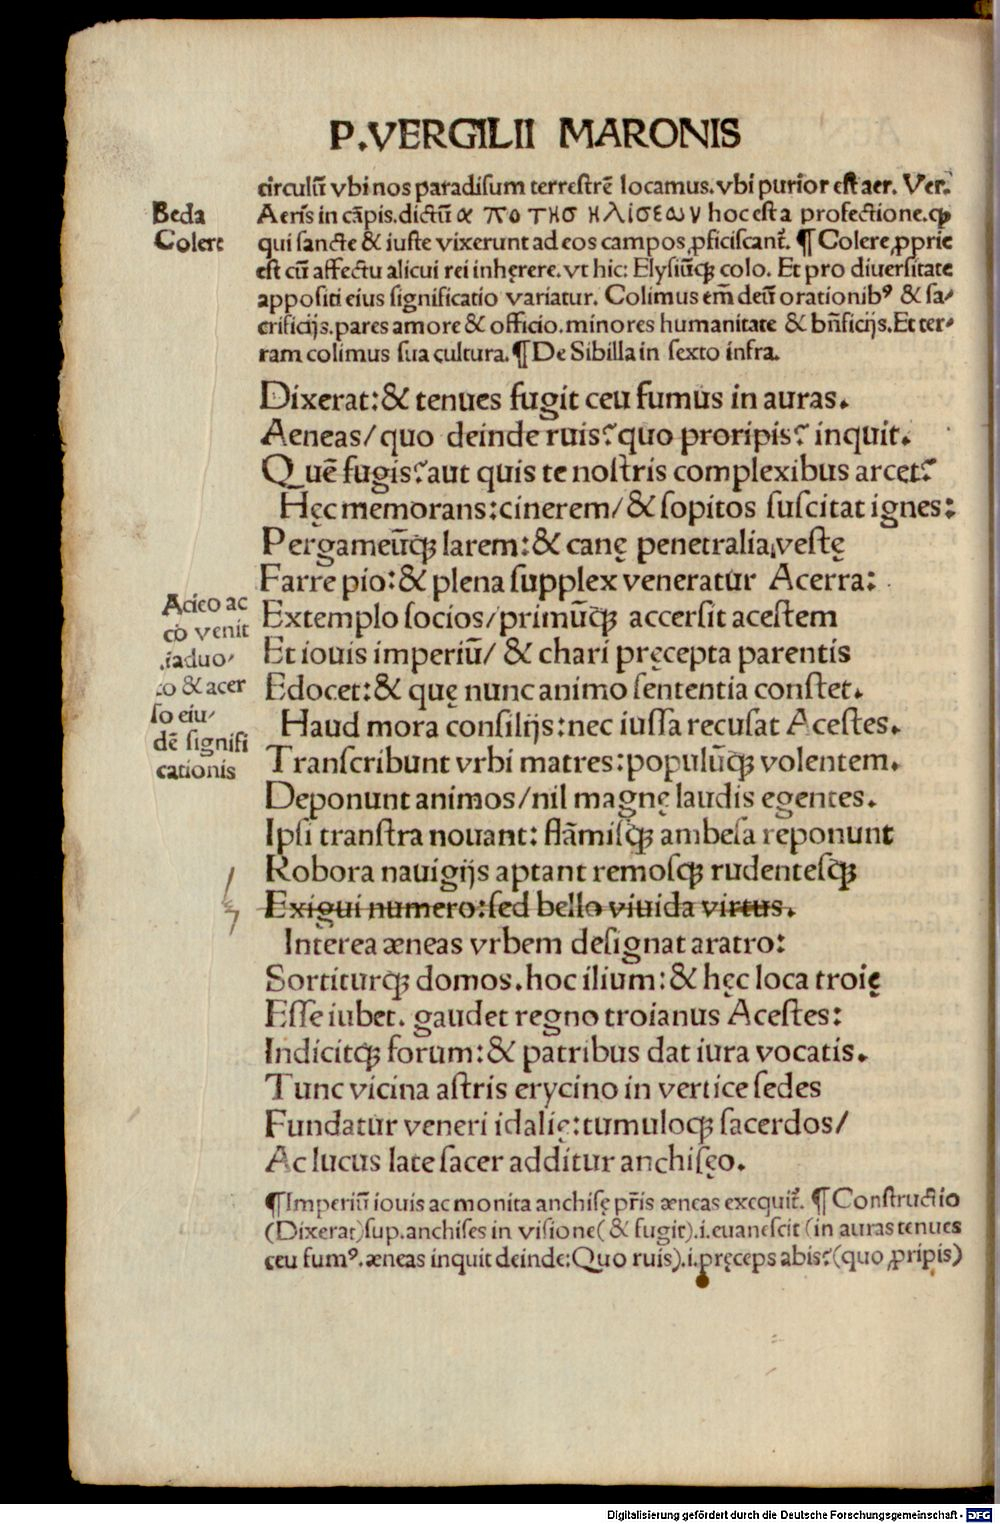 P.VERGILII MARONIS
circulū vbi nos paradisum terrestrē locamus.vbi purior est aer. Ver.
Beda
Aeris in cāpis.dictū α πο τησ ηλισεων hoc est a profectione.ꝙ
Colere
qui sancte & iuste vixerunt ad eos campos ꝓficiscant᷑. ¶ Colere ꝓprie
est cū affectu alicui rei inhęrere.vt hic: Elysiūqꝫ colo. Et pro diuersitate
appositi eius significatio variatur. Colimus em̄ deū orationibꝰ & sa⸗
crificijs.pares amore & officio.minores humanitate & bn̄ficijs.Et ter⸗
ram colimus sua cultura.¶ De Sibilla in sexto infra.
Dixerat:& tenues fugit ceu fumus in auras.
Aeneas/quo deinde ruis? quo proripis? inquit.
Quē fugis? aut quis te nostris complexibus arcet?
Hęc memorans:cinerem/& sopitos suscitat ignes:
Pergameūqꝫ larem:& canę penetralia vestę
Farre pio:& plena supplex veneratur Acerra:
Extemplo socios/primūqꝫ accersit acestem
Et iouis imperiū/ & chari pręcepta parentis
Edocet:& quę nunc animo sententia constet.
Haud mora consilijs:nec iussa recusat Acestes.
Transcribunt vrbi matres:populūqꝫ volentem.
Acieo ac
co venit
.iaduo⸗
co & acer
so eiu⸗
dē signifi
cationis
Deponunt animos/nil magnę laudis egentes.
Ipsi transtra nouant: flāmisqꝫ ambesa reponunt
Robora nauigijs aptant remosqꝫ rudentesqꝫ
Exigui numero:sed bello viuida virtus.
Interea æneas vrbem designat aratro:
Sortiturqꝫ domos.hoc ilium:& hęc loca troię
Esse iubet. gaudet regno troianus Acestes:
Indicitqꝫ forum:& patribus dat iura vocatis.
Tunc vicina astris erycino in vertice sedes
Fundatur veneri idalię:tumuloqꝫ sacerdos/
Ac lucus late sacer additur anchisęo.
¶Imperiū iouis ac monita anchisę pr̄is æneas exequit᷑. ¶ Constructio
(Dixerat)sup.anchises in visione( & fugit).i.euanescit (in auras tenues
ceu fumꝰ.æneas inquit deinde:Quo ruis).i.pręceps abis?(quo ꝓripis)
Digitalisierung gefördert durch die Deutsche Forschungsgemeinschaft - DFG